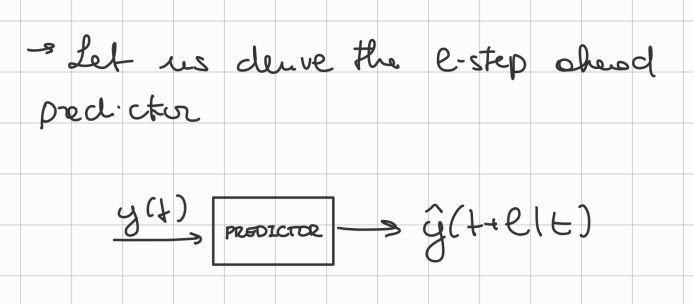 → Let us derive the l-step ahead
predictor
y(t) PREDICTOR → ŷ(t+l|t)